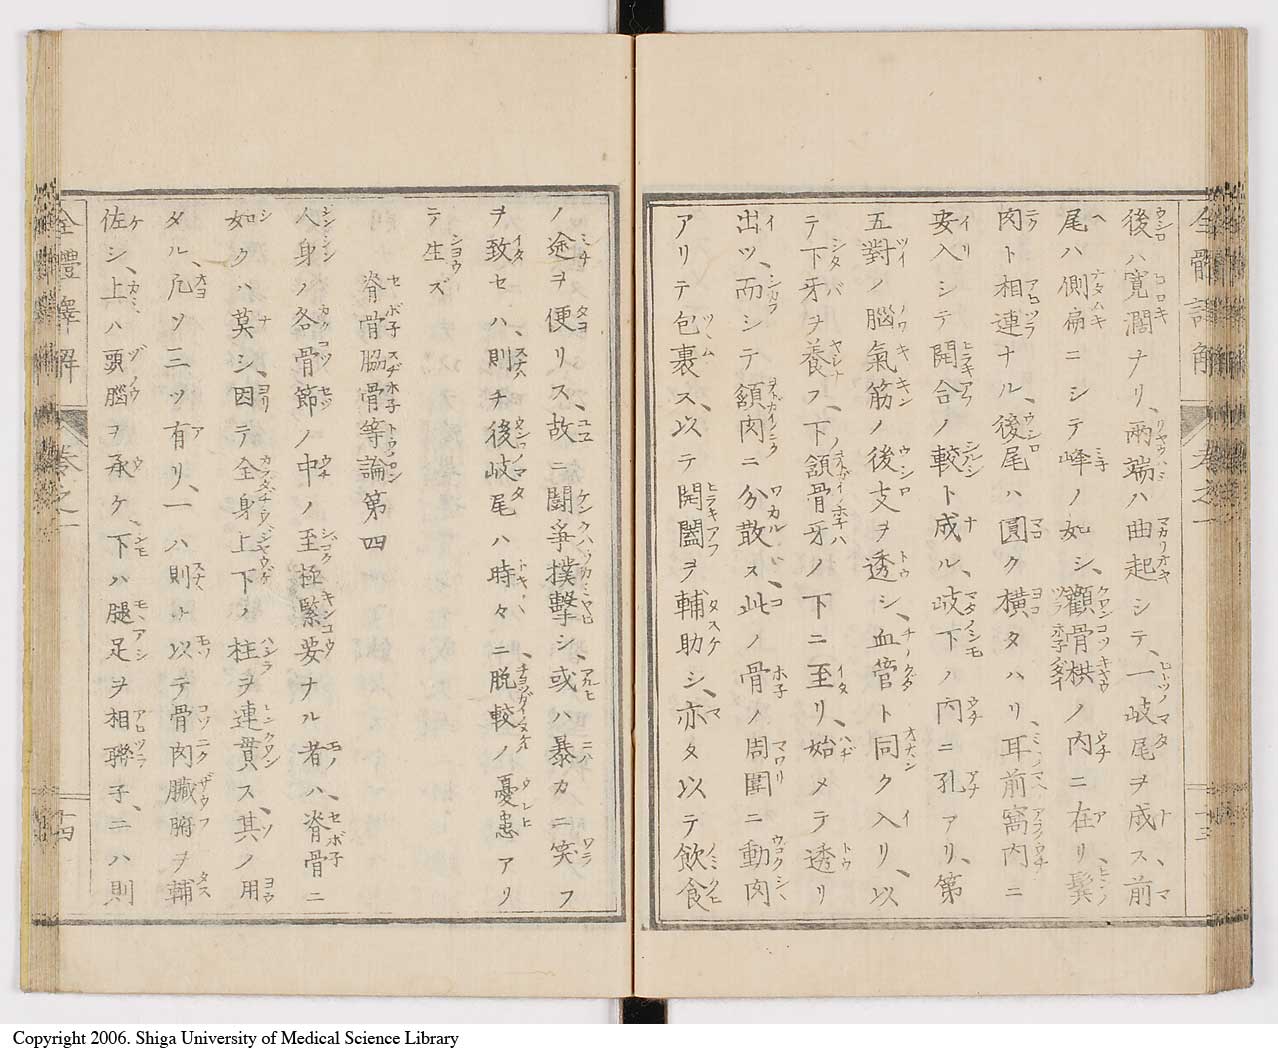 全體譯解 卷之一 十三
後ハ寛濶ナリ、兩端ハ曲起シテ、一岐尾ヲ成ス、前
尾ハ側扁ニシテ峰ノ如シ、顴骨栱ノ内ニ在リ、鬂
肉ト相連ナル、後尾ハ圓ク横タハリ、耳前窩内ニ
安入シテ開合ノ較ト成ル、岐下ノ内ニ孔アリ、第
五對ノ腦氣筋ノ後支ヲ透シ、血管ト同ク入リ、以
テ下牙ヲ養フ、下頷骨牙ノ下ニ至リ、始メテ透リ
出ツ、而シテ頷肉ニ分散ス、此ノ骨ノ周圍ニ動肉
アリテ包裹ス、以テ開闔ヲ輔助シ、亦タ以テ飲食
ノ途ヲ便リス、故ニ鬪爭撲擊シ、或ハ暴カニ笑フ
ヲ致セハ、則チ後岐尾ハ時々ニ脱較ノ憂患アリ
テ生ズ
脊骨脇骨等論第四
人身ノ各骨節ノ中ノ至極緊要ナル者ハ、脊骨ニ
如クハ莫シ、因テ全身上下ノ柱ヲ連貫ス、其ノ用
タル、凡ソ三ツ有リ、一ハ則ト以テ骨肉臟腑ヲ輔
佐シ、上ハ頭腦ヲ承ケ、下ハ腿足ヲ相聯子、二ハ則
全體譯解 卷之一 十四
Copyright 2006. Shiga University of Medical Science Library